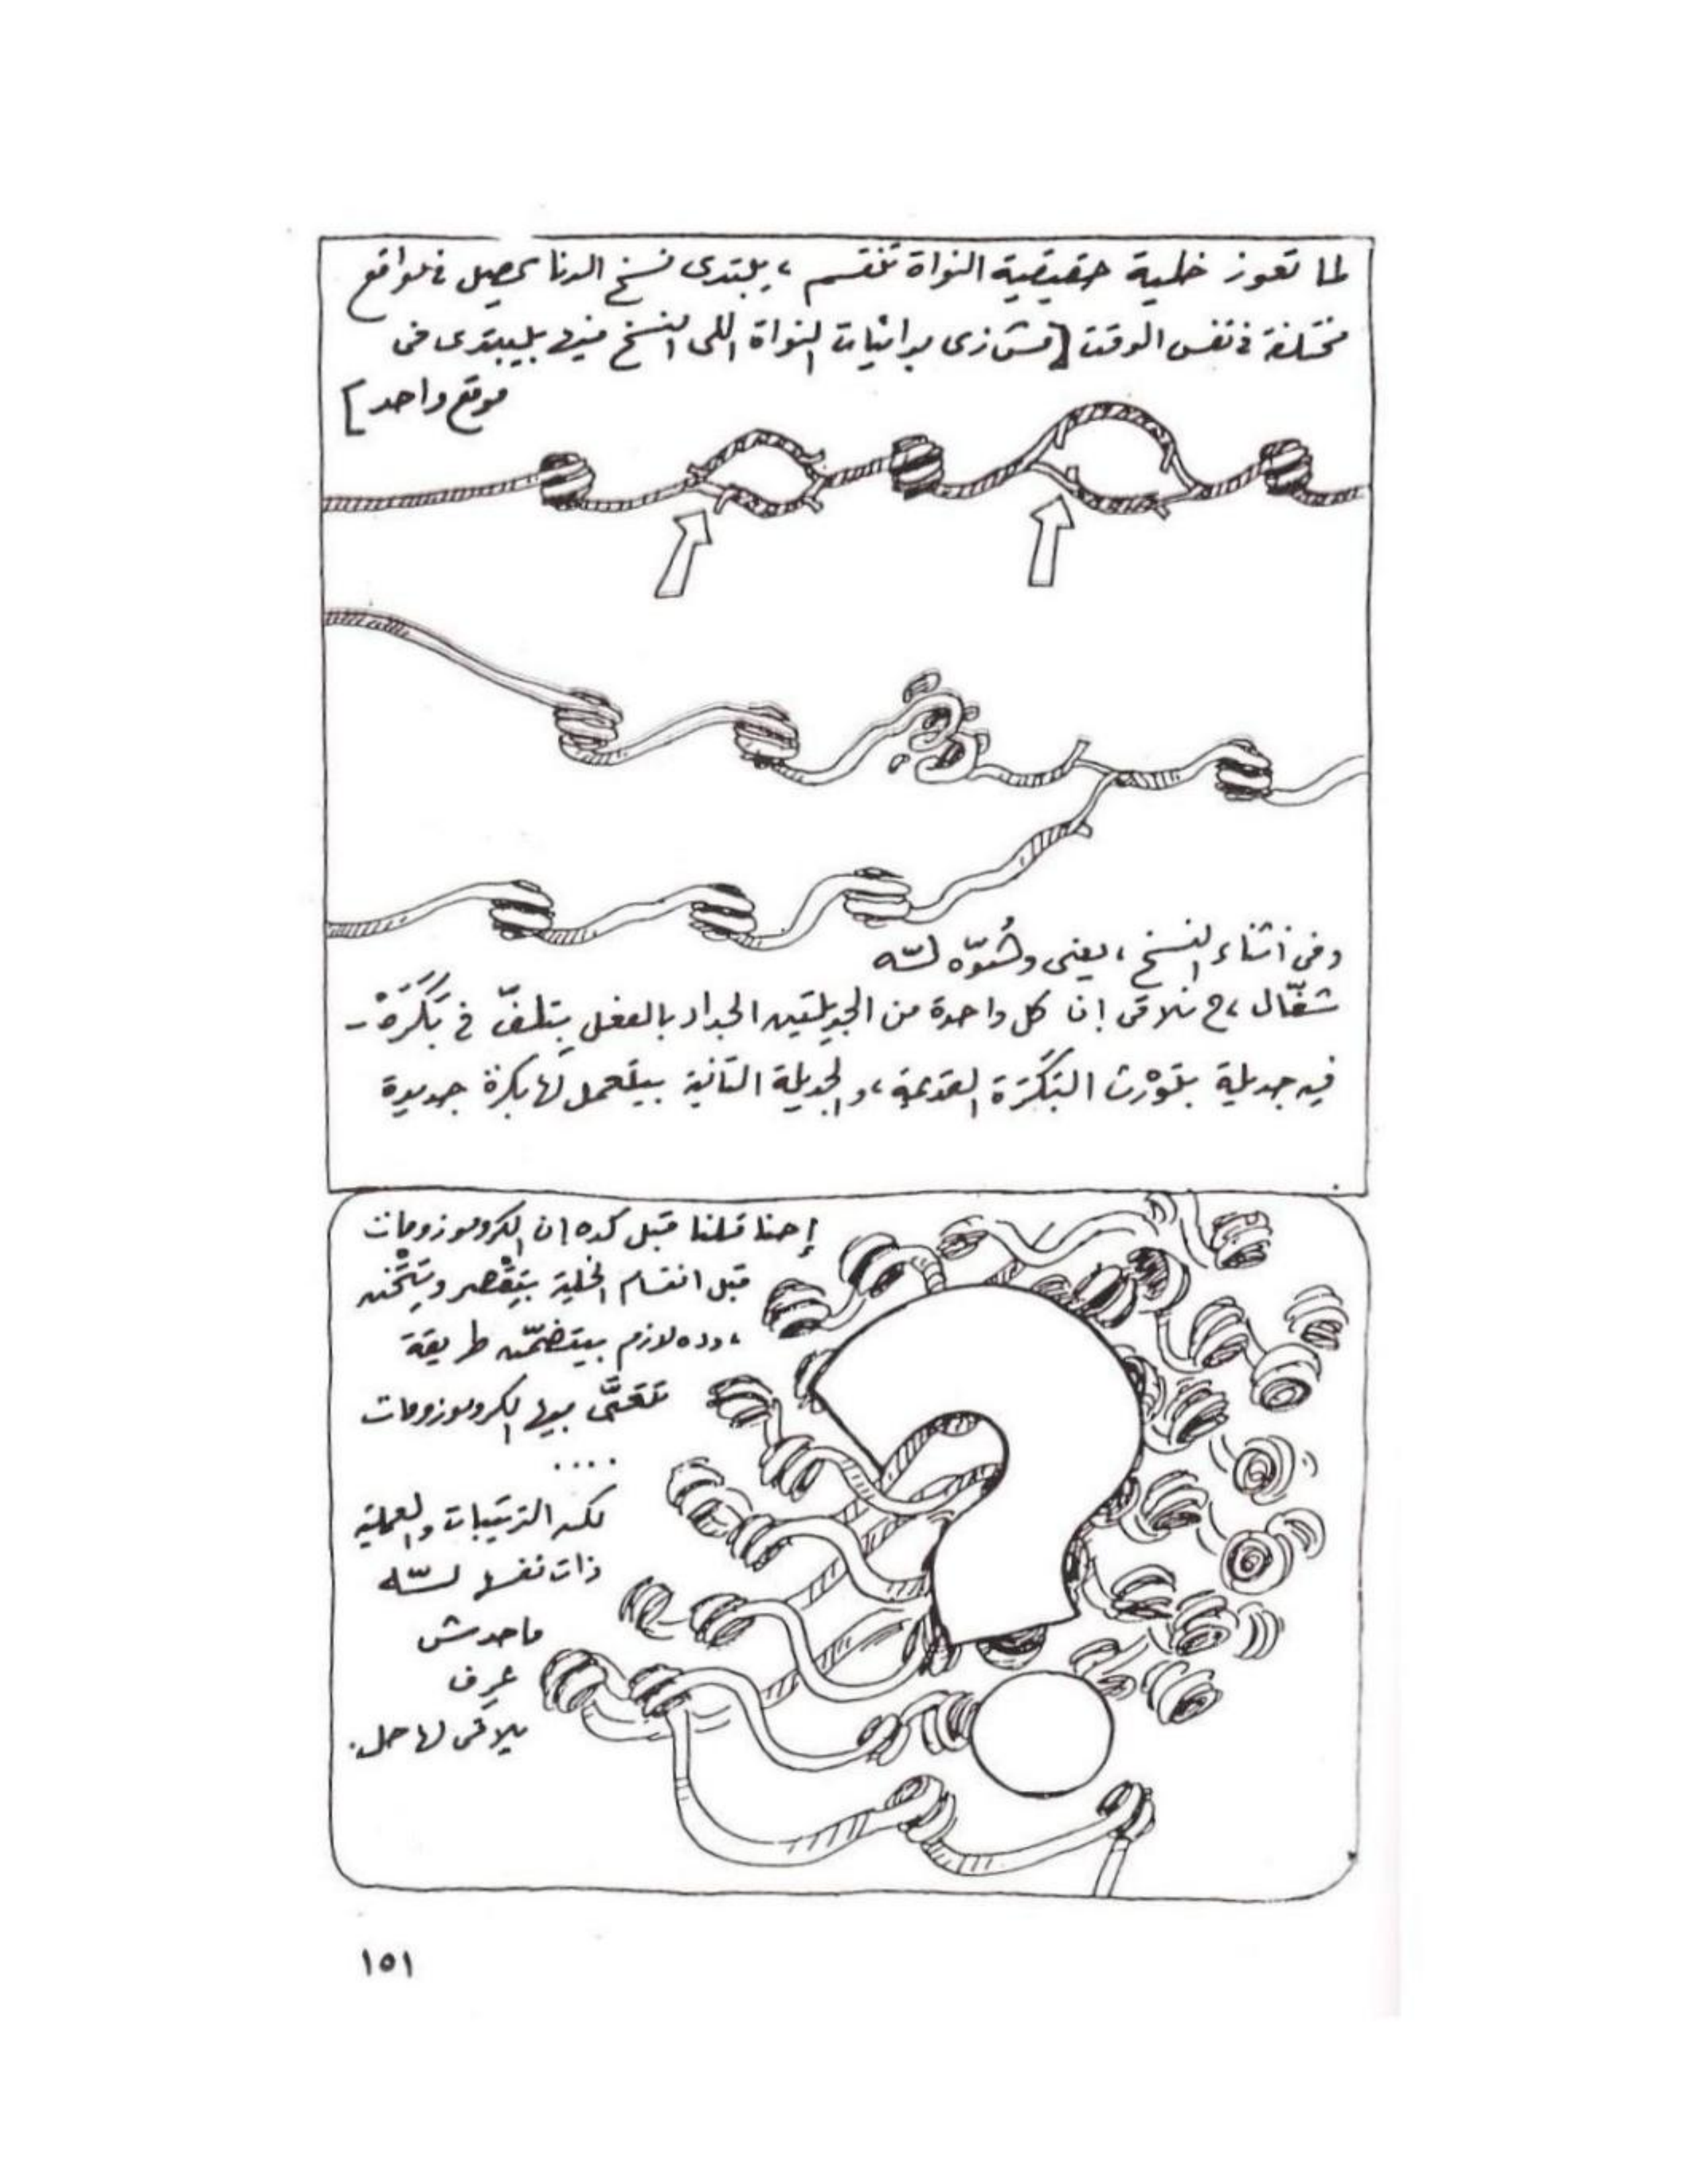 لما تعوز خلية حقيقية النواة تنقسم ، بيبتدى نسخ الدنا يحصل فى مواقع
مختلفة فى نفس الوقت [مش زى بدائيات النواة اللى النسخ فيها بيبتدى فى
موقع واحد]
وفى أثناء النسخ ، يعنى وهُوّه لسّه
شغّال ، ح نلاقى إن كل واحدة من الجديلتين الجداد بالفعل بتلفّ فى بَكَرَهْ -
فيه جديلة بتوْرث البَكَرَة القديمة ، والجديلة التانية بيتعمل لها بكرة جديدة
إحنا قلنا قبل كده ان الكروموزومات
قبل انقسام الخلية بتِقْصر وبتِتْخن
، وده لازم بيتضمّن طريقة
تتعبَّى بيها الكروموزومات
....
لكن الترتيبات والعملية
ذات نفسها لسّه
ماحدش
عرف
يلاقى لها حل.
١٥١